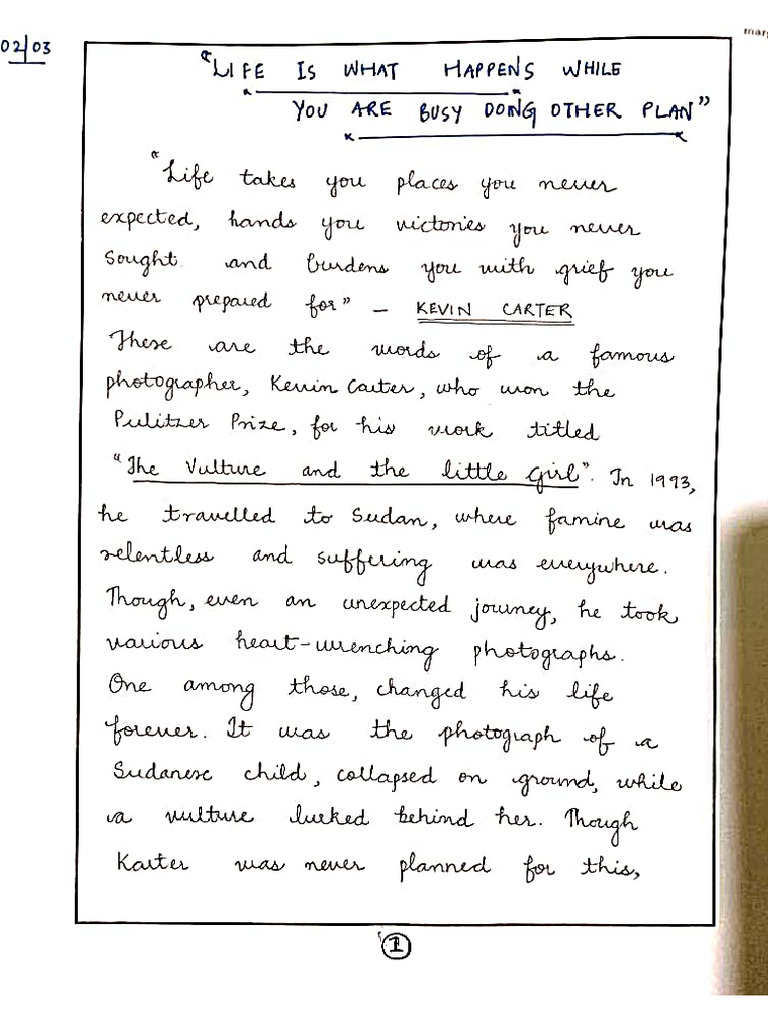 02/03
mar
"LIFE IS WHAT HAPPENS WHILE
YOU ARE BUSY DOING OTHER PLAN"
"Life takes you places you never
expected, hands you victories you never
sought and burdens you with grief you
never prepared for" – KEVIN CARTER
These are the words of a famous
photographer, Kevin Carter, who won the
Pulitzer Prize, for his work titled
"The Vulture and the little Girl". In 1993,
he travelled to Sudan, where famine was
relentless and suffering was everywhere.
Though, even an unexpected journey, he took
various heart-wrenching photographs.
One among those, changed his life
forever. It was the photograph of a
Sudanese child, collapsed on ground, while
a vulture lurked behind her. Though
Karter was never planned for this,
1